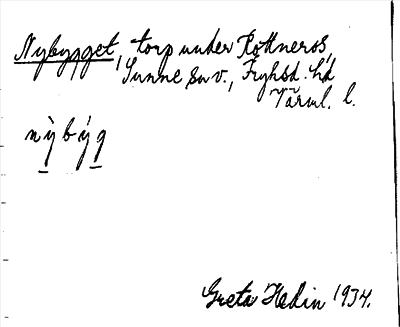 Nybygget, torp under Rottneros,
Sunne sn v., Fryksd. hd
Värml. l.
nỳbýg
Greta Hedin 1934.